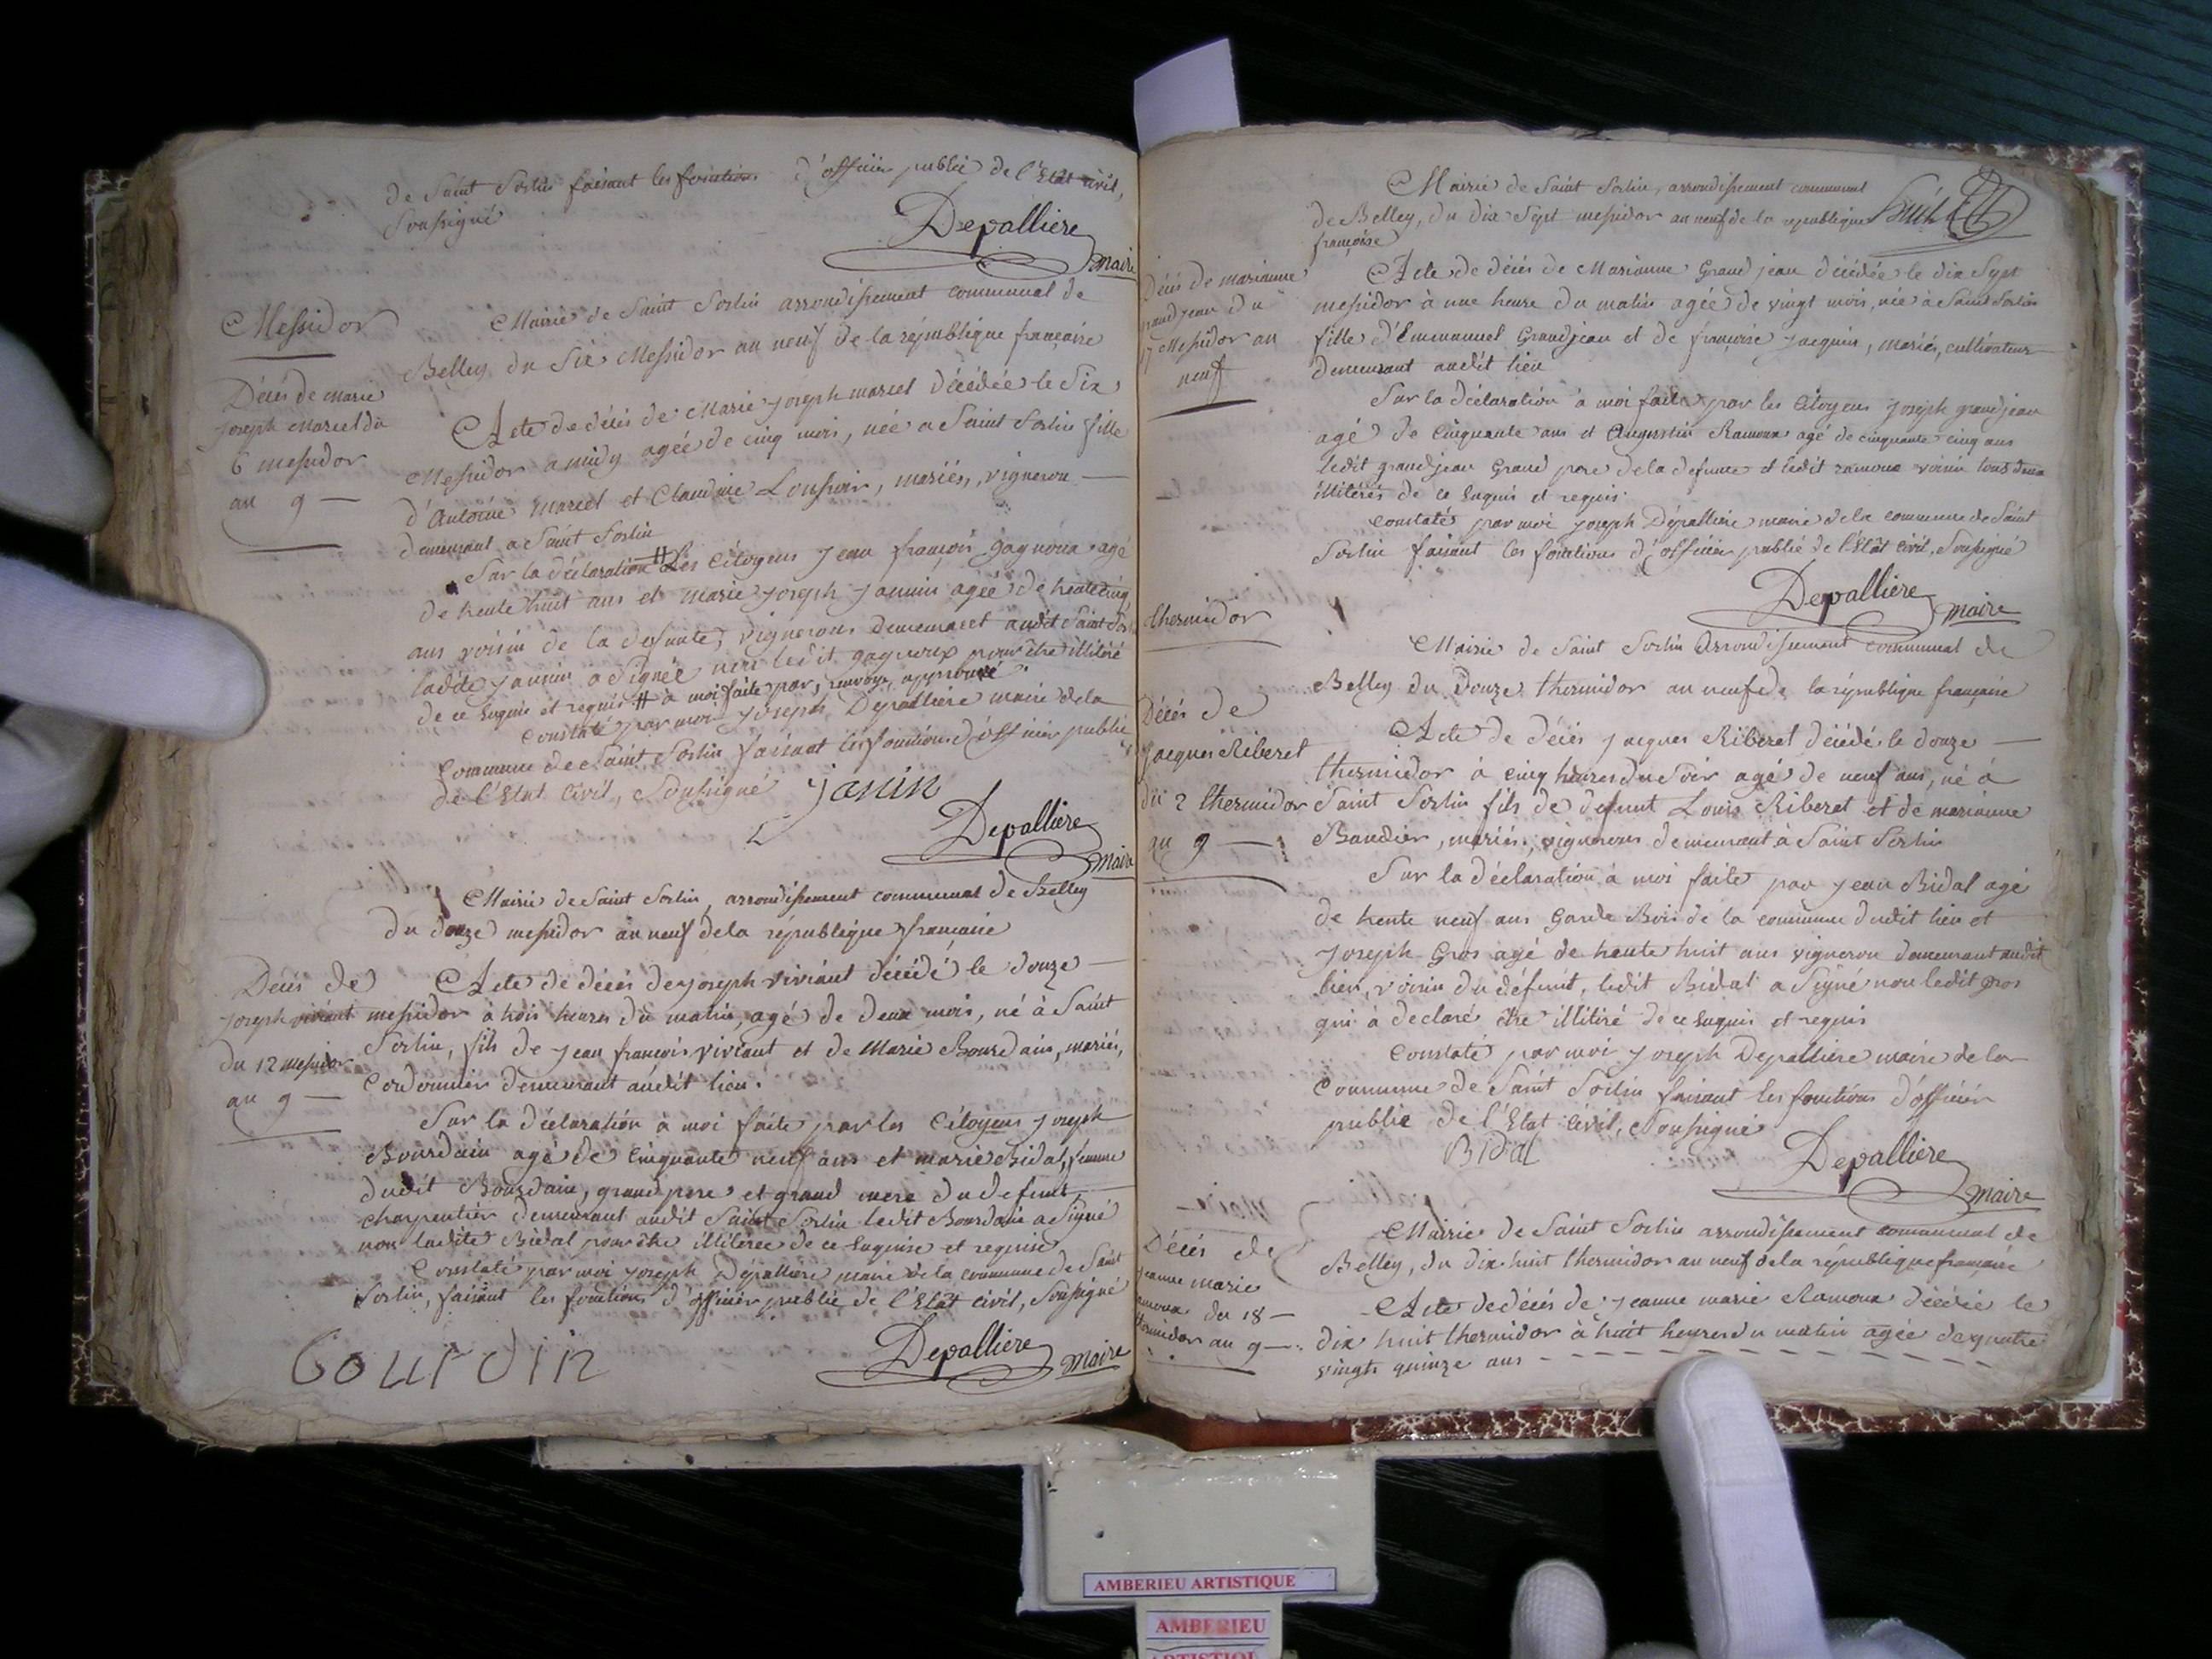 de Saint Sorlin faisant les fonctions d'officier public de l'Etat civil,
Soussigné
Depalliere
maire
Messidor
Mairie de Saint Sorlin arrondissement communal de
Belley du Six Messidor an neuf de la république française
Décès de marie
joseph Marcel du
6 messidor
an 9 —
Acte de décès de Marie joseph marcel décédée le Six
Messidor a midy agée de cinq mois, née a Saint Sorlin fille
d'Antoine Marcel et Claudine, mariés, vigneron —
demeurant a Saint Sorlin
Sur la déclaration # Les Citoyens Jean françois gagnoux agé
de trente huit ans et marie joseph jannin agée de trente cinq
ans voisin de la defunte, vignerons demeurant audit Saint Sor
ladite jannin a Signée non ledit gagneux pour être illitéré
de ce Enquis et requis # a moi faite par, renvoye approuvé
Constaté par moi Joseph Depalliere maire de la
Commune de Saint Sorlin faisant les fonctions d'officier public
de l'Etat Civil, Soussigné
janin
Depalliere
maire
Mairie de Saint Sorlin, arrondissement communal de Belley
du douze messidor an neuf de la république française
Décès de
joseph viviant
du 12 messidor
an 9 —
Acte de décès de joseph viviant décédé le douze —
messidor à trois heures du matin, agé de deux mois, né à Saint
Sorlin, fils de Jean françois viviant et de Marie Bourdain, mariés,
Cordonnier demeurant audit lieu.
Sur la déclaration à moi faite par les Citoyens Joseph
Bourdain agé de Cinquante neuf ans et marie Bidal, femme
dudit Bourdain, grand pere et grand mere du defunt,
charpentier demeurant audit Saint Sorlin ledit Bourdain a Signé
non ladite Bidal pour être illitérée de ce Enquise et requise
Constaté par moi Joseph Depalliere maire de la commune de Saint
Sorlin, faisant les fonctions d'officier public de l'Etat Civil, Soussigné
Bourdin
Depalliere
maire
Mairie de Saint Sorlin, arrondissement communal
de Belley, du dix Sept messidor an neuf de la republique
françoise
Décès de marianne
grandjean du
17 Messidor an
neuf
Acte de décès de Marianne Grandjean décédée le dix Sept
messidor à une heure du matin agée de vingt mois, née à Saint Sorlin
fille d'Emmanuel Grandjean et de françoise jacquin, mariés, cultivateur
demeurant audit lieu
Sur la déclaration à moi faite par les Citoyens joseph grandjean
agé de Cinquante ans et Augustin Ramoux agé de cinquante cinq ans
ledit grandjean Grand pere de la defunte et ledit ramoux voisin tous deux
illitérés de ce Enquis et requis.
Constaté par moi joseph Dépalliere maire de la commune de Saint
Sorlin faisant les fonctions d'officier public de l'Etat Civil, Soussigné
Depalliere
maire
thermidor
Mairie de Saint Sorlin Arrondissement communal de
Belley du Douze thermidor an neuf de la république française
Décès de
Jacques Riberet
du 2 thermidor
an 9 —
Acte de décès Jacques Riberet décédé le douze —
thermidor à cinq heures du Soir agé de neuf ans, né à
Saint Sorlin fils de défunt Louis Riberet et de marianne
Baudier, mariés, vignerons demeurant à Saint Sorlin
Sur la déclaration à moi faite par jean Bidal agé
de trente neuf ans Garde Bois de la commune dudit lieu et
Joseph Gros agé de trente huit ans vigneron demeurant audit
lieu, voisin du défunt, ledit Bidal a Signé non ledit gros
qui à declaré être illitéré de ce Enquis et requis
Constaté par moi Joseph Depalliere maire de la
Commune de Saint Sorlin faisant les fonctions d'officier
public de l'Etat Civil, Soussigné
Bidal
Depalliere
maire
Mairie de Saint Sorlin arrondissement communal de
Belley, du dix huit thermidor an neuf de la république française
Décès de
jeanne marie
amoux du 18 —
thermidor an 9 —
Acte de décès de jeanne marie Ramoux décédée le
dix huit thermidor à huit heures du matin agée de quatre
vingts quinze ans
AMBERIEU ARTISTIQUE
AMBERIEU
ARTISTIQUE